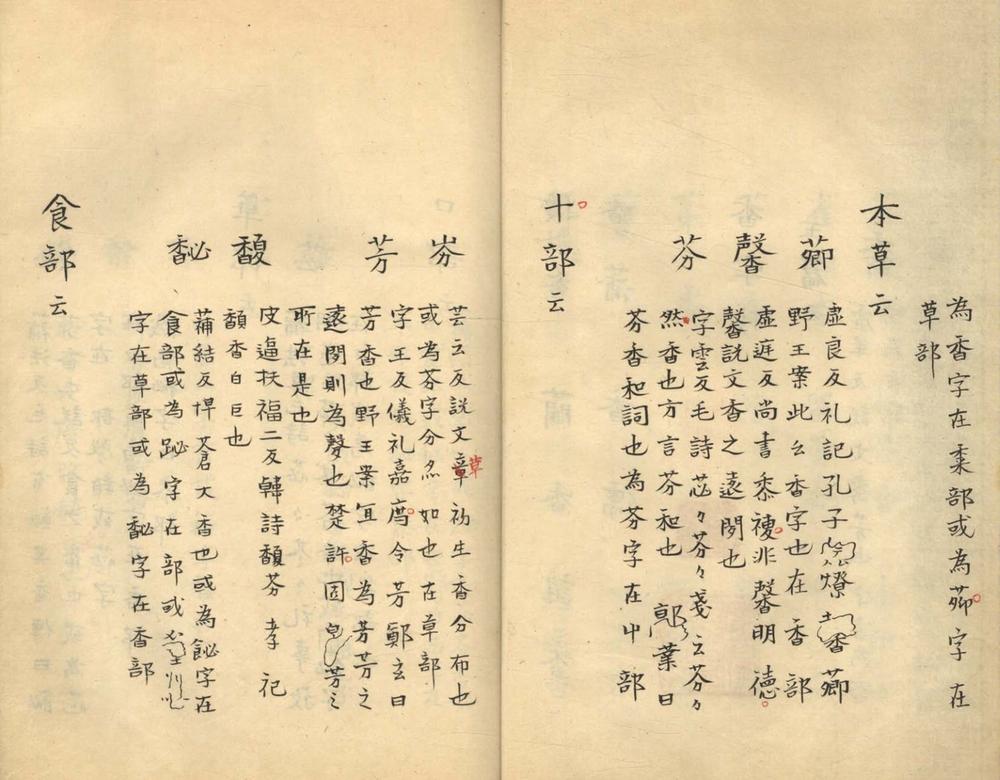 為香字在黍部或為薌字在
草部
本草云
薌
虛良反礼記孔子燎香薌
野王案此么香字也在香部
馨
虛廷反尚書黍稷非馨明德
馨說文香之遠聞也
芬
字雲反毛詩苾々芬々戔云芬々
然香也方言芬和也郭葉曰
芬香和詞也為芬字在屮部
十部云
岑
芸云反說文章草初生香分布也
或為芬字分名如也在草部
芳
字王反儀礼嘉廌令芳鄭玄曰
芳香也野王案冝香為芳芳之
遠聞則為聲也楚許固芳之
所在是也
馥
皮逼扶福二反韓詩馥芬孝祀
馥香白巨也
䬛
蒱結反悍蒼大香也或為飶字在
食部或為䟤字在部或
字在草部或為馝字在香部
食部云